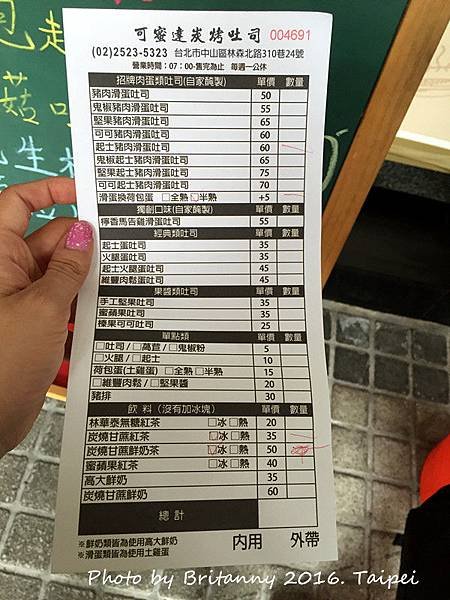 包起
菇
可蜜達炭烤吐司 004691
(02)2523-5323 台北市中山區林森北路310巷24號
營業時間：07：00-售完為止 每週一公休
招牌肉蛋類吐司(自家醃製) 單價 數量
豬肉滑蛋吐司 50
鬼椒豬肉滑蛋吐司 55
堅果豬肉滑蛋吐司 65
可可豬肉滑蛋吐司 60
起士豬肉滑蛋吐司 60
鬼椒起士豬肉滑蛋吐司 65
堅果起士豬肉滑蛋吐司 75
可可起士豬肉滑蛋吐司 70
滑蛋換荷包蛋 □全熟 □半熟 +5
獨創口味(自家醃製) 單價 數量
檸香馬告雞滑蛋吐司 55
經典類吐司 單價 數量
起士蛋吐司 35
火腿蛋吐司 35
起士火腿蛋吐司 45
維豐肉鬆蛋吐司 45
果醬類吐司 單價 數量
手工堅果吐司 35
蜜蘋果吐司 35
榛果可可吐司 25
單點類 單價 數量
□吐司 / □萵苣 / □鬼椒粉 5
□火腿 / □起士 10
荷包蛋(土雞蛋) □全熟 □半熟 15
□維豐肉鬆 / □堅果醬 20
豬排 30
飲 料 (沒有加冰塊) 單價 數量
林華泰無糖紅茶 □冰 □熱 20
炭燒甘蔗紅茶 □冰 □熱 35
炭燒甘蔗鮮奶茶 □冰 □熱 50
蜜蘋果紅茶 □冰 □熱 40
高大鮮奶 35
炭燒甘蔗鮮奶 60
總 計
※鮮奶類皆為使用高大鮮奶
※滑蛋類皆為使用土雞蛋
內用 外帶
Photo by Britanny 2016. Taipei